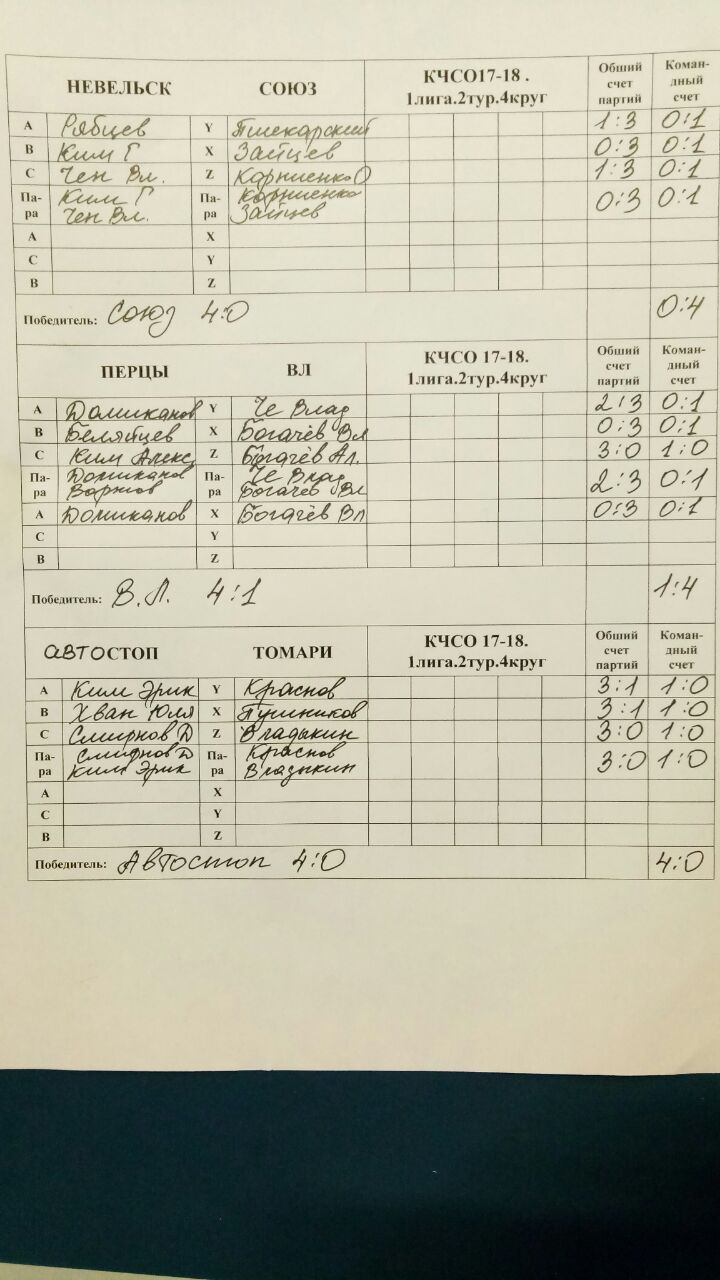 НЕВЕЛЬСК СОЮЗ КЧСО17-18 . 1лига.2тур.4круг Общий счет партий Коман-дный счет
А Рябцев Y Пшекарский 1:3 0:1
В Ким Г X Зайцев 0:3 0:1
С Чен Вл. Z Корниенко О 1:3 0:1
Па-ра Ким Г Чен Вл. Па-ра Корниенко Зайцев 0:3 0:1
А X
С Y
В Z
Победитель: Союз 4:0 0:4
ПЕРЦЫ ВЛ КЧСО 17-18. 1лига.2тур.4круг Общий счет партий Коман-дный счет
А Домиканов Y Че Влад 2:3 0:1
В Беляйцев X Богачёв Вл 0:3 0:1
С Ким Алекс Z Богачёв Ал. 3:0 1:0
Па-ра Домиканов Па-ра Че Влад Богачёв Вл 2:3 0:1
А Домиканов X Богачёв Вл 0:3 0:1
С Y
В Z
Победитель: В.Л. 4:1 1:4
АВТОСТОП ТОМАРИ КЧСО 17-18. 1лига.2тур.4круг Общий счет партий Коман-дный счет
А Ким Эрик Y Краснов 3:1 1:0
В Хван Юля X Пушников 3:1 1:0
С Смирнов Д Z Владыкин 3:0 1:0
Па-ра Смирнов Д Ким Эрик Па-ра Краснов Владыкин 3:0 1:0
А X
С Y
В Z
Победитель: Автостоп 4:0 4:0